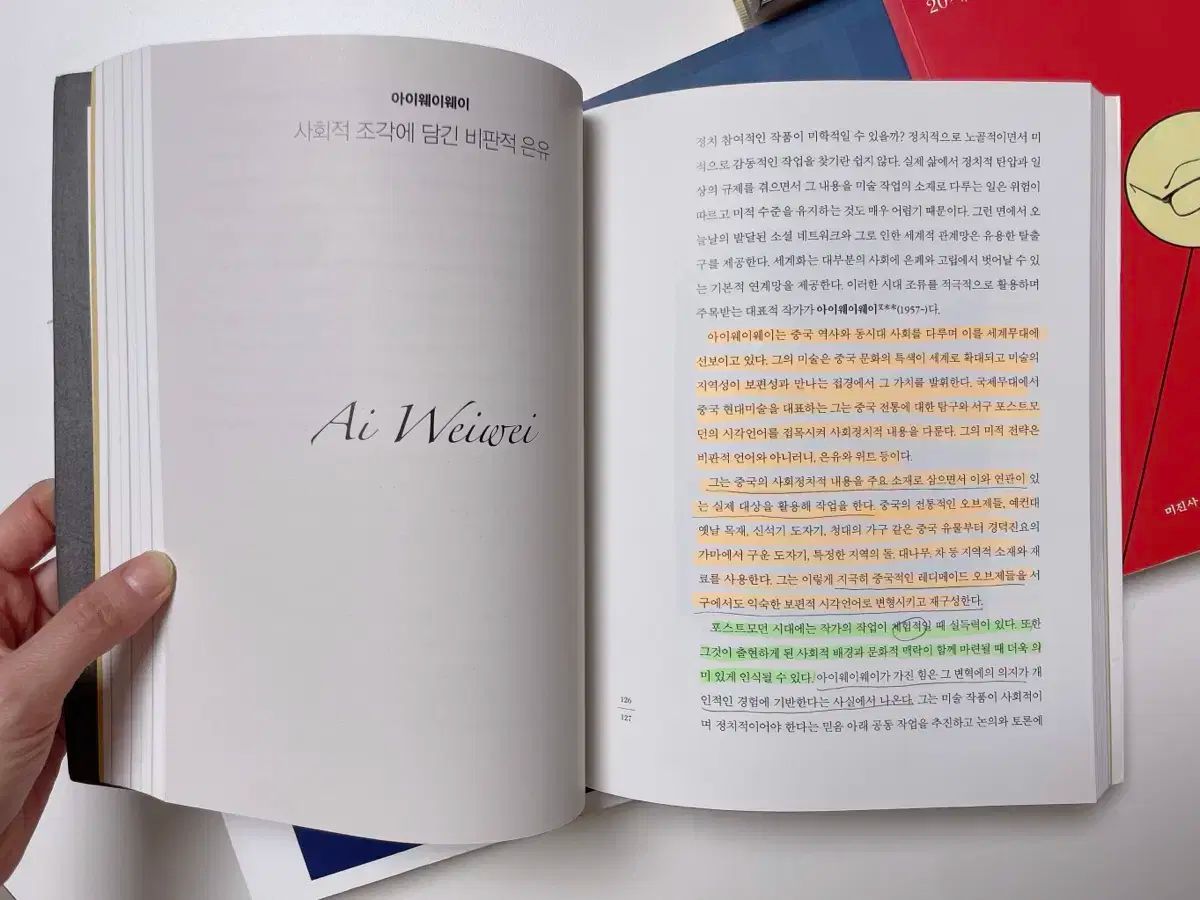 아이웨이웨이
사회적 조각에 담긴 비판적 은유
Ai Weiwei
정치 참여적인 작품이 미학적일 수 있을까? 정치적으로 노골적이면서 미
적으로 감동적인 작업을 찾기란 쉽지 않다. 실제 삶에서 정치적 탄압과 일
상의 규제를 겪으면서 그 내용을 미술 작업의 소재로 다루는 일은 위험이
따르고 미적 수준을 유지하는 것도 매우 어렵기 때문이다. 그런 면에서 오
늘날의 발달된 소셜 네트워크와 그로 인한 세계적 관계망은 유용한 탈출
구를 제공한다. 세계화는 대부분의 사회에 은폐와 고립에서 벗어날 수 있
는 기본적 연계망을 제공한다. 이러한 시대 조류를 적극적으로 활용하며
주목받는 대표적 작가가 아이웨이웨이(1957-)다.
아이웨이웨이는 중국 역사와 동시대 사회를 다루며 이를 세계무대에
선보이고 있다. 그의 미술은 중국 문화의 특색이 세계로 확대되고 미술의
지역성이 보편성과 만나는 접경에서 그 가치를 발휘한다. 국제무대에서
중국 현대미술을 대표하는 그는 중국 전통에 대한 탐구와 서구 포스트모
던의 시각언어를 접목시켜 사회정치적 내용을 다룬다. 그의 미적 전략은
비판적 언어와 아니러니, 은유와 위트 등이다.
그는 중국의 사회정치적 내용을 주요 소재로 삼으면서 이와 연관이 있
는 실제 대상을 활용해 작업을 한다. 중국의 전통적인 오브제들, 예컨대
옛날 목재, 신석기 도자기, 청대의 가구 같은 중국 유물부터 경덕진요의
가마에서 구운 도자기, 특정한 지역의 돌, 대나무, 차 등 지역적 소재와 재
료를 사용한다. 그는 이렇게 지극히 중국적인 레디메이드 오브제들을 서
구에서도 익숙한 보편적 시각언어로 변형시키고 재구성한다.
포스트모던 시대에는 작가의 작업이 체험적일 때 설득력이 있다. 또한
그것이 출현하게 된 사회적 배경과 문화적 맥락이 함께 마련될 때 더욱 의
미 있게 인식될 수 있다. 아이웨이웨이가 가진 힘은 그 변혁에의 의지가 개
인적인 경험에 기반한다는 사실에서 나온다. 그는 미술 작품이 사회적이
며 정치적이어야 한다는 믿음 아래 공동 작업을 추진하고 논의와 토론에
126
127
미진사